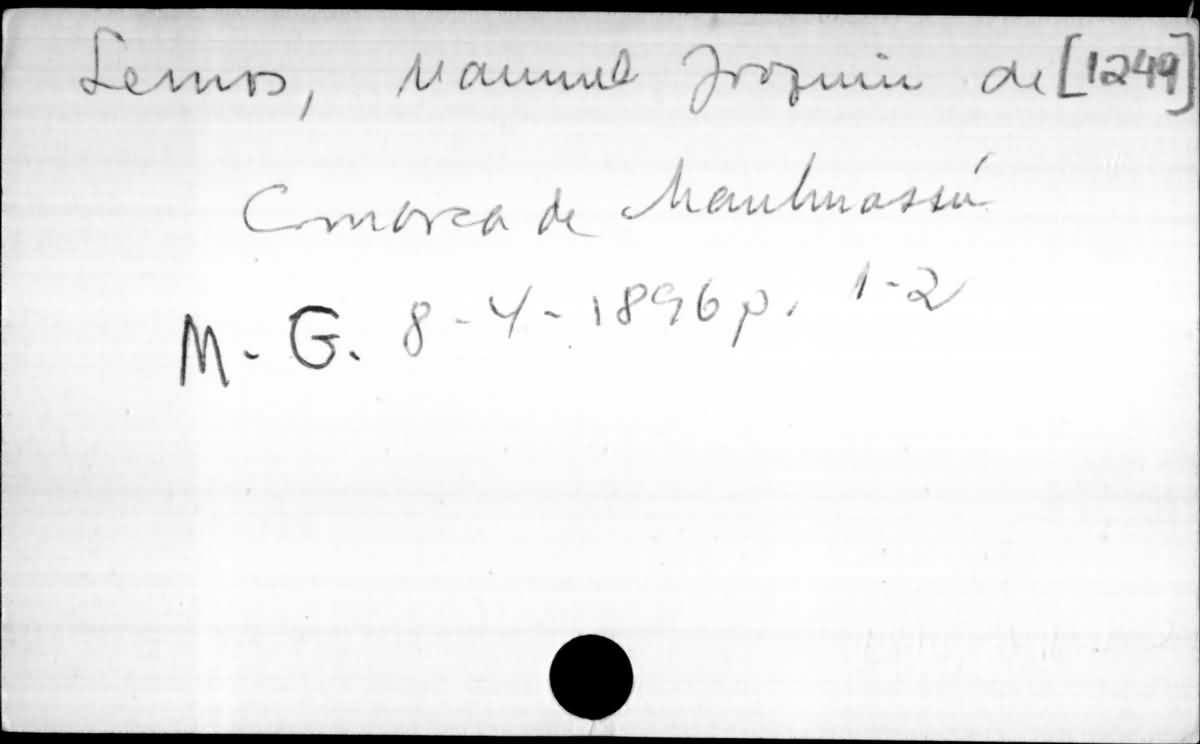 Lemos, Manuel Joaquim de [1249]
Comarca de Manhuassú
M. G. 8-4-1896 p. 1-2